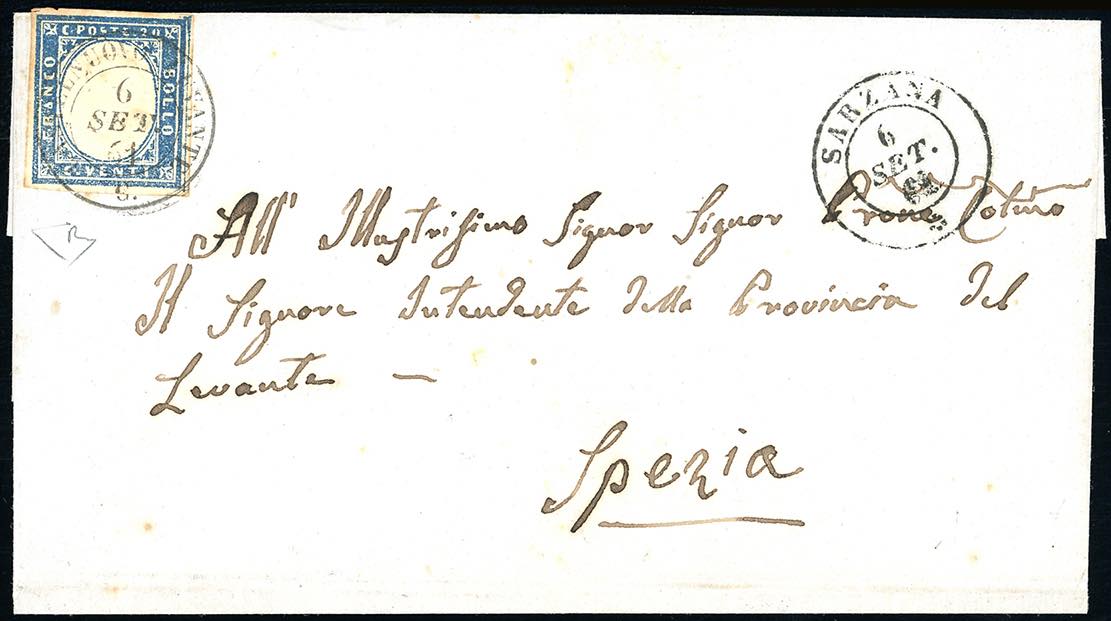 C. POSTE 20
FRANCO
BOLLO
6
SET
61
G.
SARZANA
6
SET.
61
All' Illustrissimo Signor Signor Prone
Il Signore Intendente della Provincia del
Levante —
Spezia